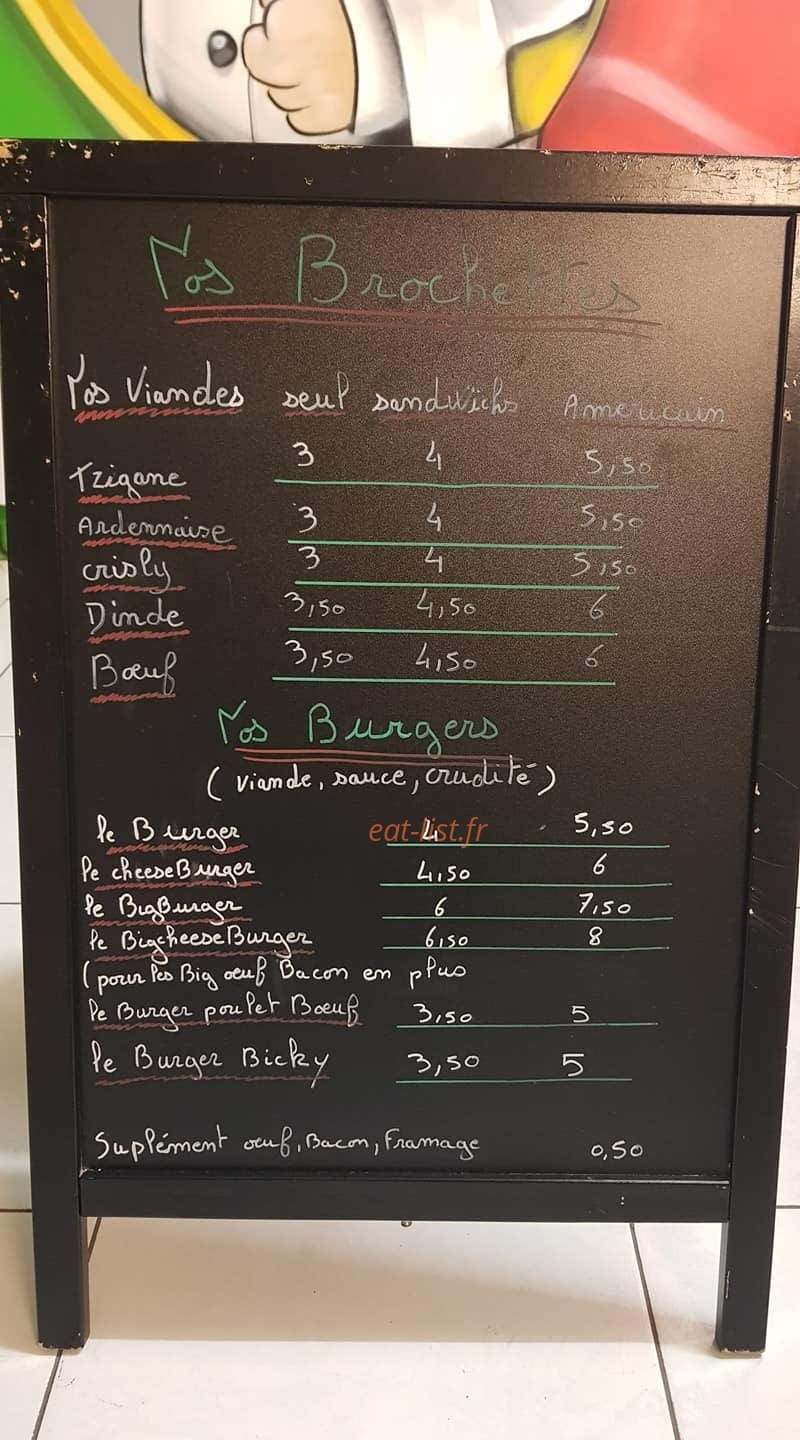 Nos Brochettes
Nos Viandes seul sandwichs Americain
Tzigane 3 4 5,50
Ardennaise 3 4 5,50
crisly 3 4 5,50
Dinde 3,50 4,50 6
Bœuf 3,50 4,50 6
Nos Burgers
(viande, sauce, crudité)
le Burger 4 5,50
eat-list.fr
le cheeseBurger 4,50 6
le BigBurger 6 7,50
le BigcheeseBurger 6,50 8
(pour les Big œuf Bacon en plus
le Burger poulet Bœuf 3,50 5
le Burger Bicky 3,50 5
Suplément œuf, Bacon, Framage 0,50